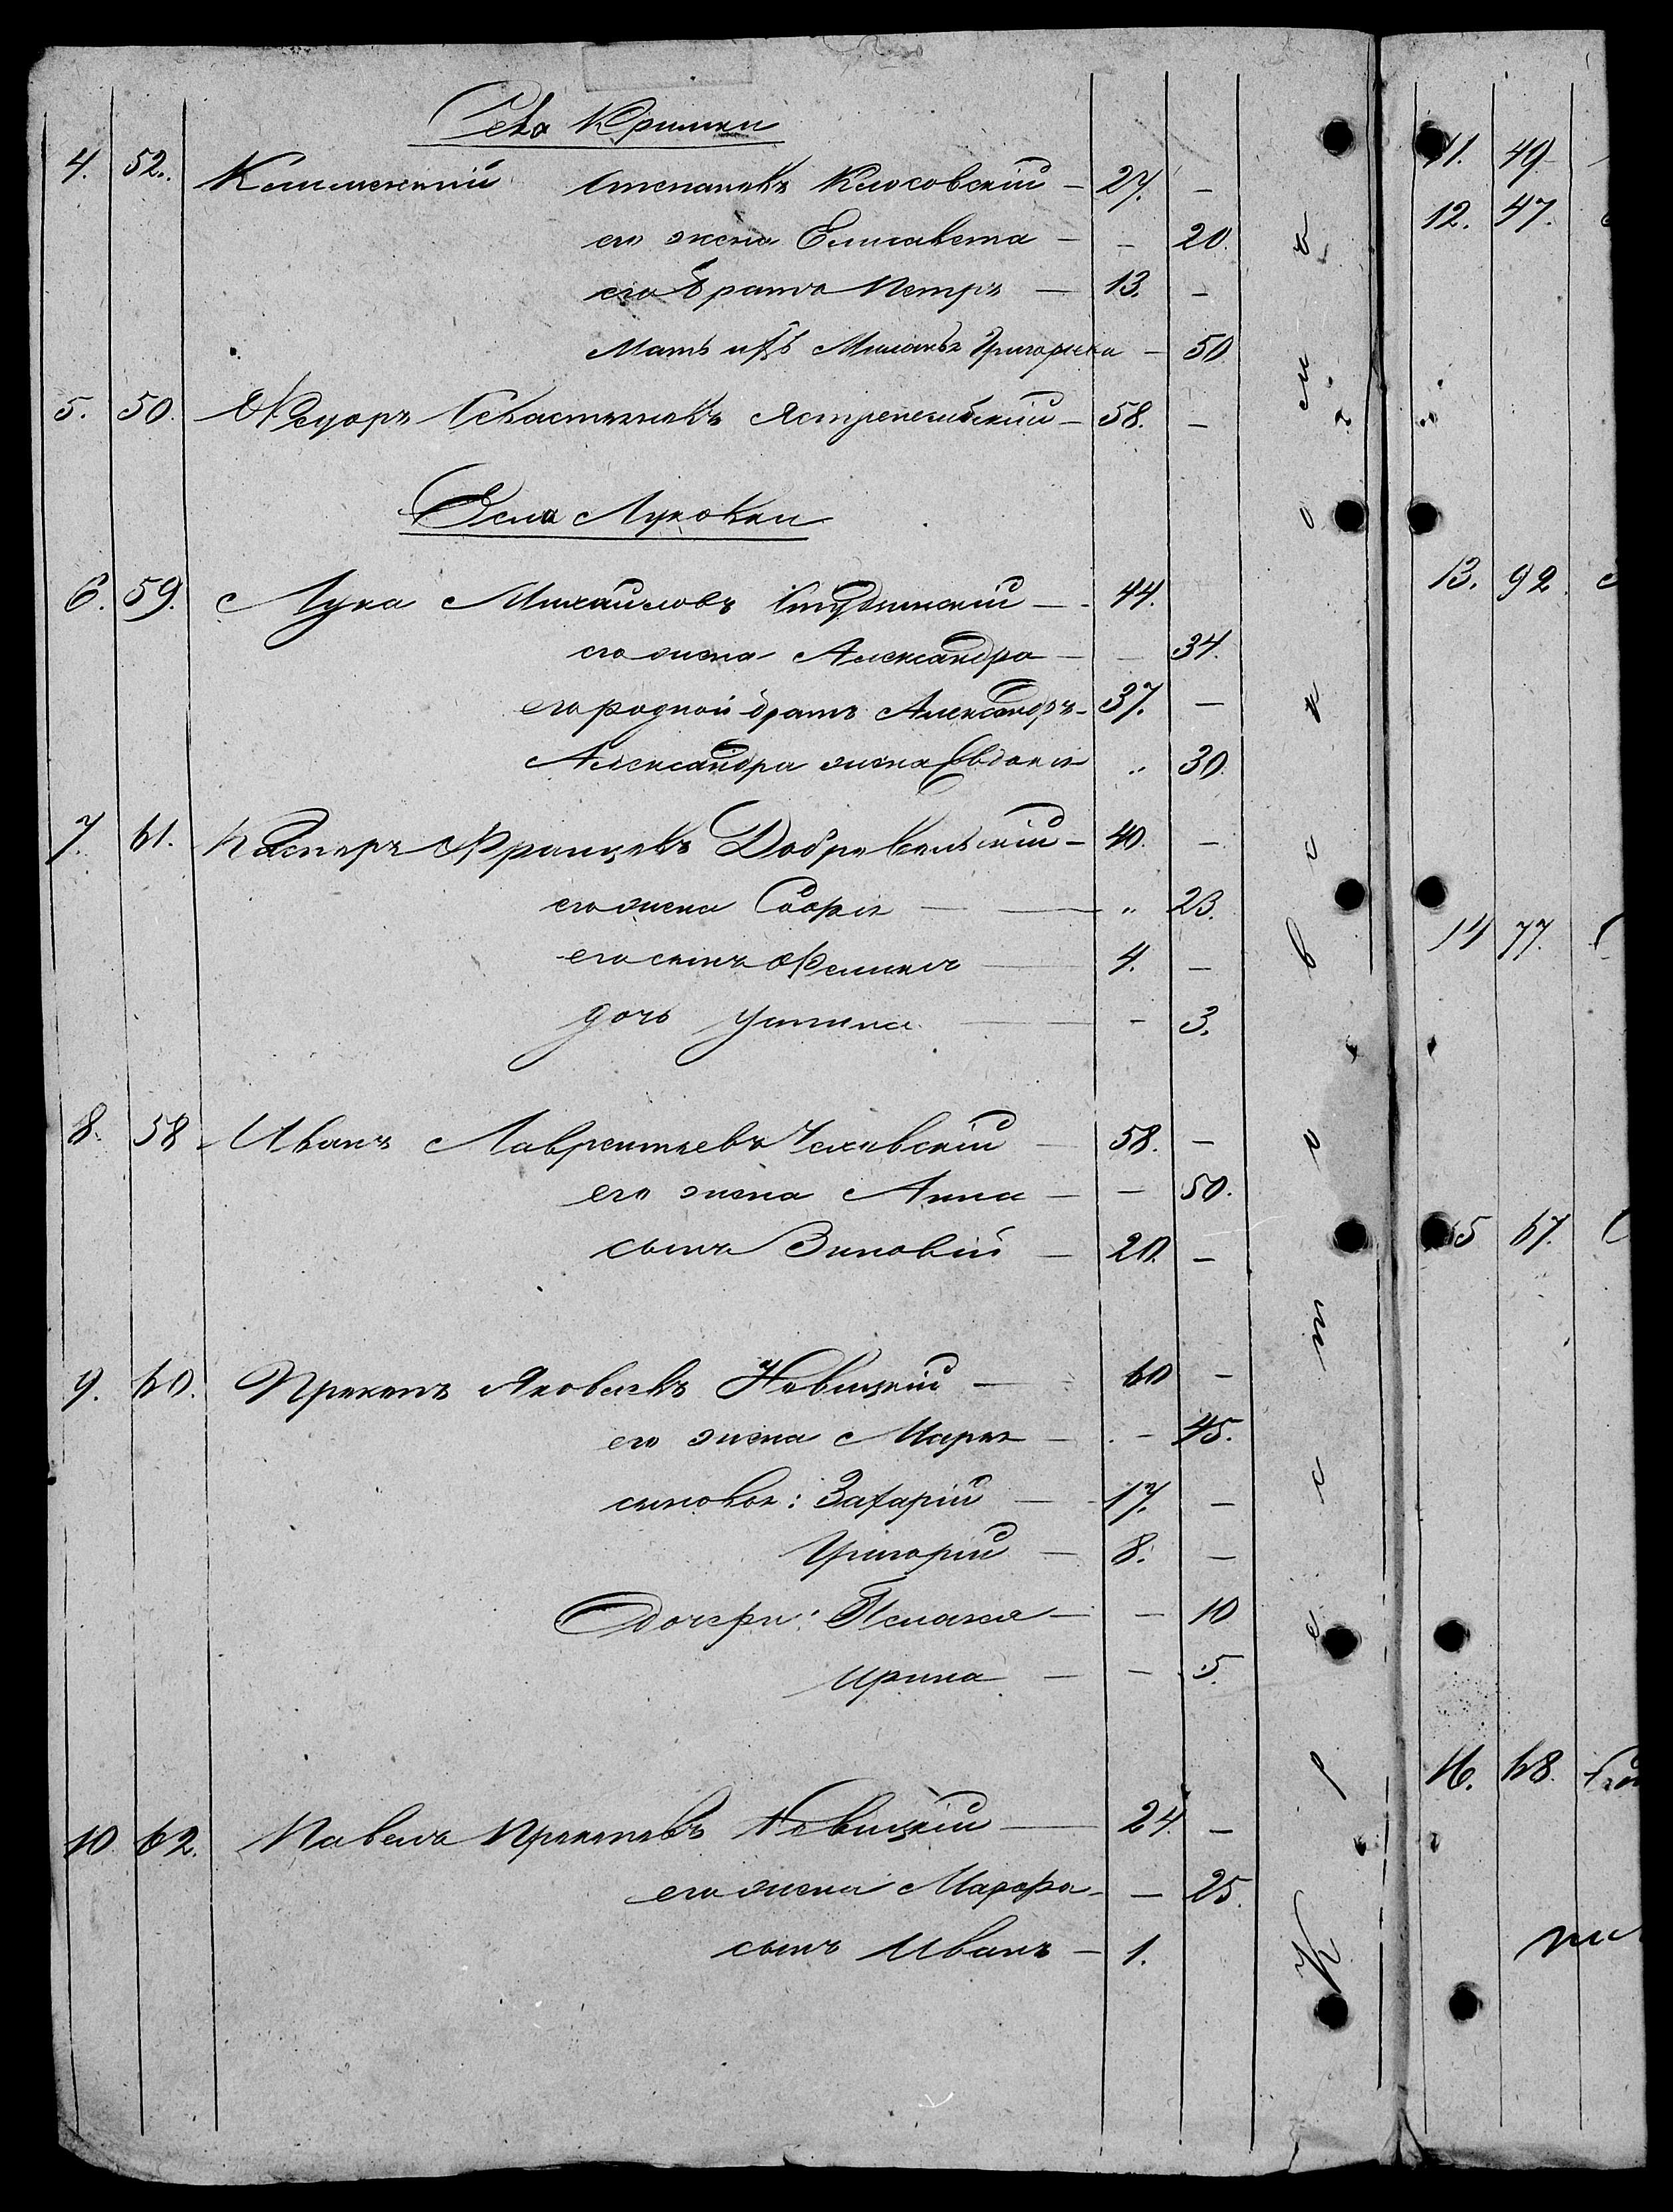 Села Кришки
4. 52. Климентий Степановъ Клосовскій — 27. —
его жена Елисавета — — 20.
его братъ Петръ — 13. —
Мать ихъ Григорьева — 50
5. 50. Федоръ Севастьяновъ — 58. —
Села Луковки
6. 59. Лука Михайловъ — 44.
его жена Александра — — 34.
его родной братъ Александръ — 37. —
Александра жена Евдокия „ 30.
7. 61. Касперъ Францевъ Добровольскій — 40. —
его жена Софія — „ 23.
его сынъ Феликсъ — 4. —
дочь Устина — — 3.
8. 58 Иванъ Лаврентьевъ Чеховскій — 58. —
его жена Анна — — 50.
сынъ Зиновій — 20. —
9. 60. Прокопъ Яковлевъ Новицкій — 60 —
его жена Марья — — 45.
сыновья: Захарій — 17. —
Григорій — 8. —
Дочери: Пелагея — — 10
Ирина — — 5.
10 62. Павелъ Прокоповъ Новицкій — 24. —
его жена Марфа — — 25.
сынъ Иванъ — 1.
К р е с т о в с к о
11. 49
12. 47.
13. 92
14 77.
15 67.
16. 68.